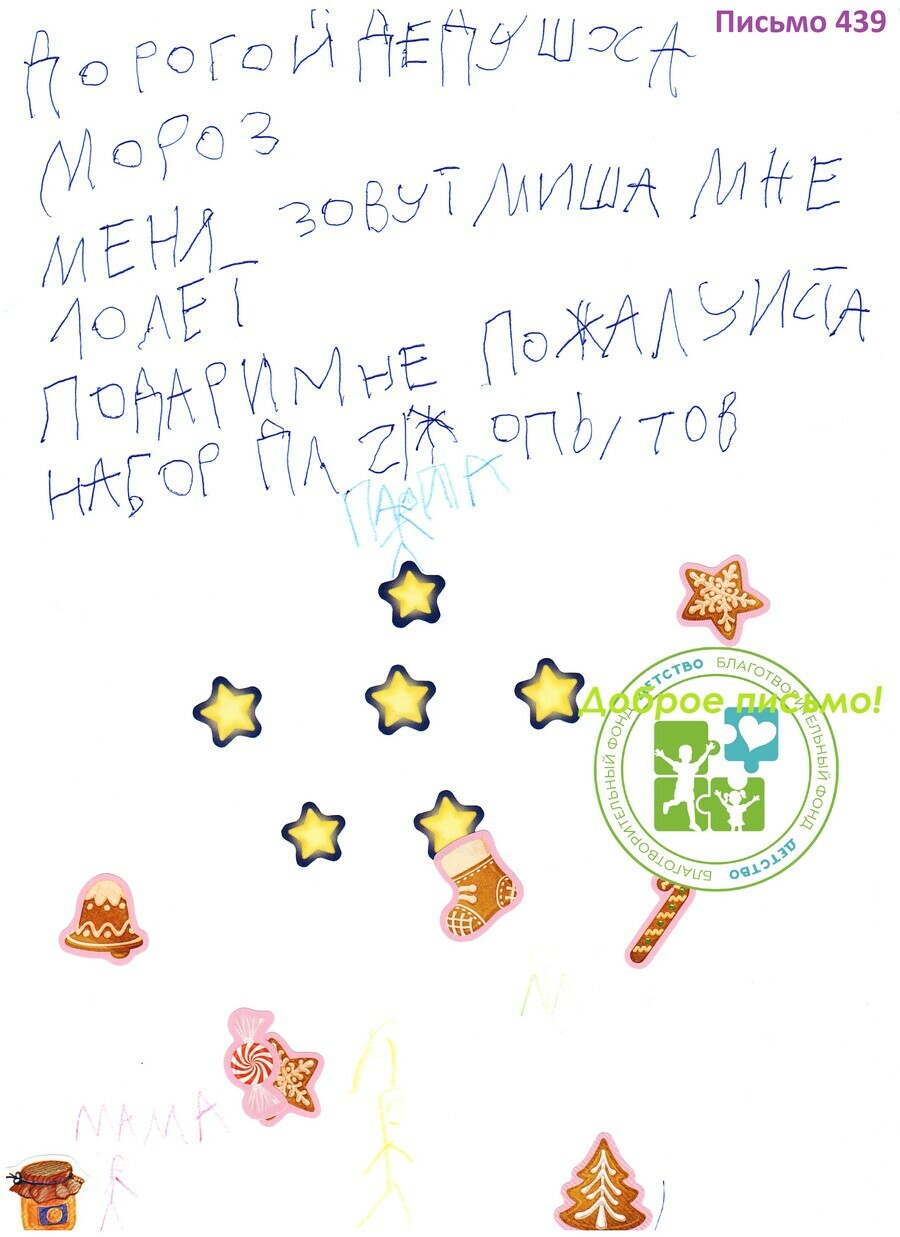 Письмо 439
ДОРОГОЙ ДЕДУШКА
МОРОЗ
МЕНЯ ЗОВУТ МИША МНЕ
10 ЛЕТ
ПОДАРИ МНЕ ПОЖАЛУИСТА
НАБОР ДЛЯ ОПЫТОВ
ПАПА
ДЕТСТВО БЛАГОТВОРИТЕЛЬНЫЙ ФОНД
Доброе письмо!
ДЕТСТВО БЛАГОТВОРИТЕЛЬНЫЙ ФОНД
МАМА